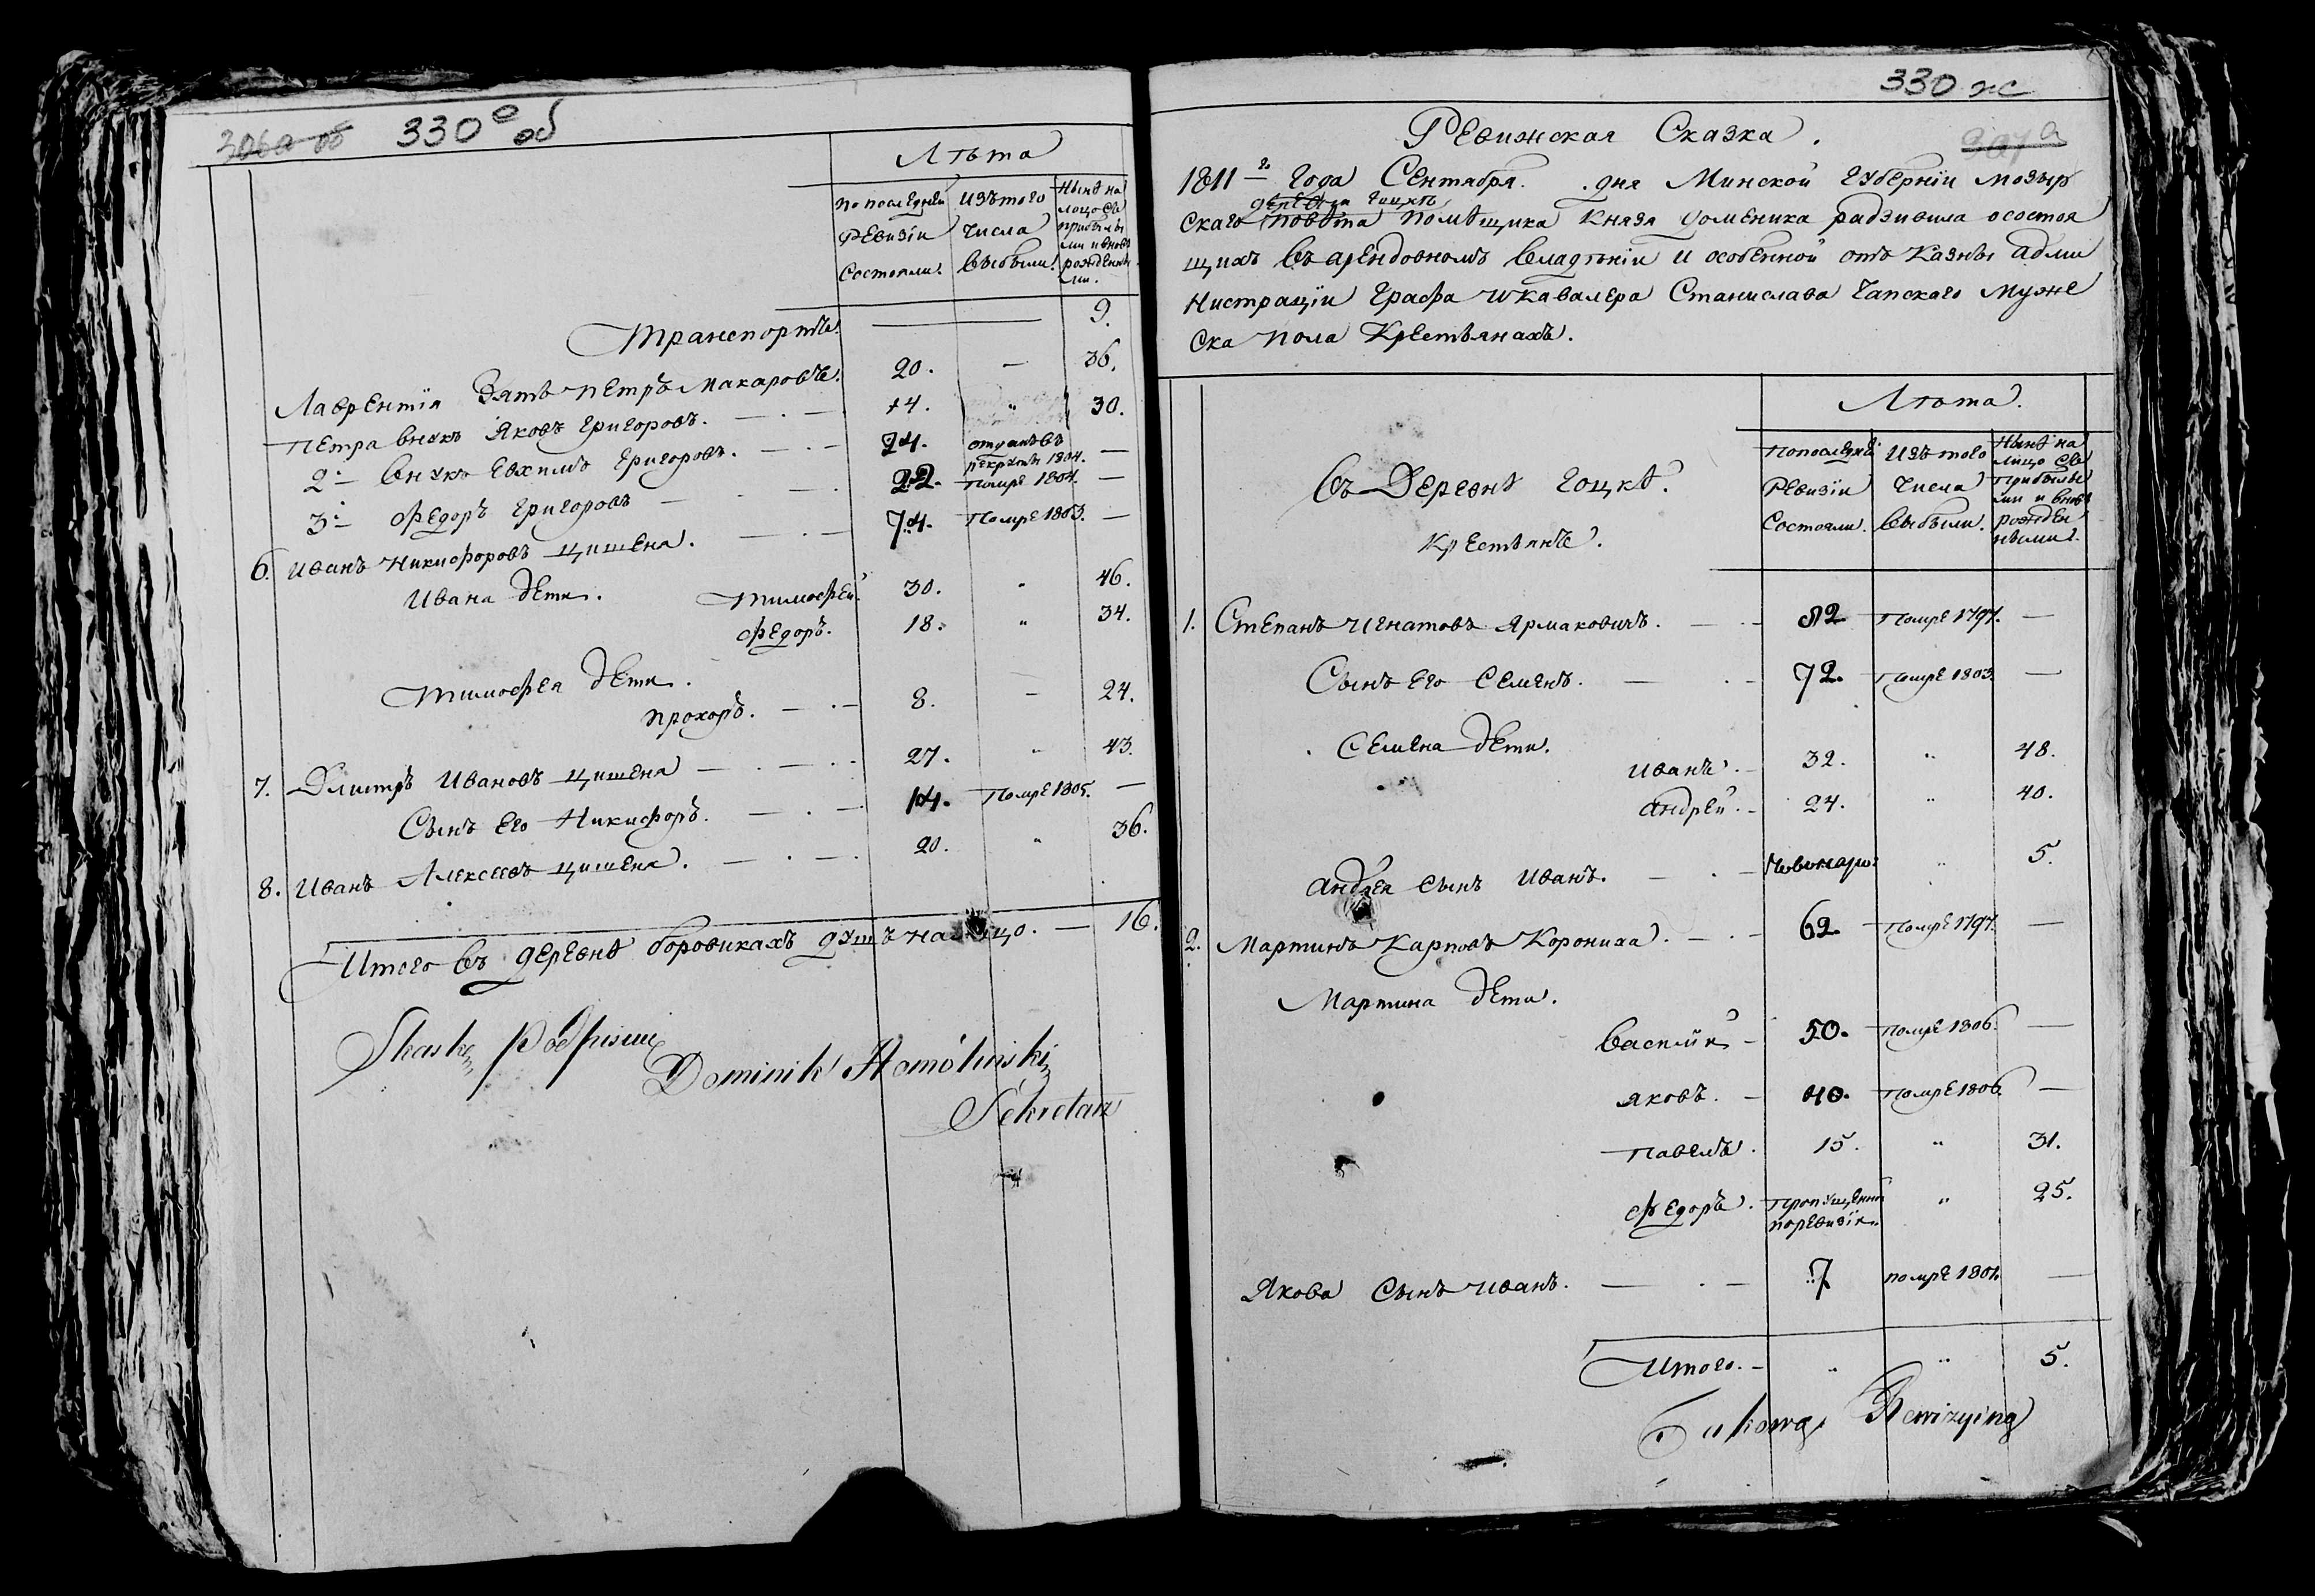 306а об 330 е об
Лѣта
По последней Ревизіи Состояли. Изъ того Числа Выбыли. Нынѣ на лицо съ прибылы ми и вновь рожденны ми.
Транспортъ. — 9.
Лаврентія Зять Петръ Макаровъ. 20. — 36.
Петра внукъ Яковъ Григоровъ. 14. " 30.
2й внукъ Евхимъ Григоровъ. 24. отданъ въ рекруты 1804. —
3й Федоръ Григоровъ 22. Помре 1804. —
6. Иванъ Никифоровъ Цишена. 74. Помре 1803. —
Ивана дети. Тимофей 30. " 46.
Федоръ. 18. " 34.
Тимофея дети.
Прохоръ. 8. — 24.
7. Дмитръ Ивановъ Цишена 27. " 43.
Сынъ Его Никифоръ. 14. Помре 1805. —
8. Иванъ Алексеевъ Цишена. 20. " 36.
Итого въ деревнѣ Боровикахъ душъ налицо. — 16.
Skaskę Podpisuię
Dominik
Sekretarz
330 ж
307 а
Ревижская Сказка.
1811 г. Года Сентября . дня Минской Губерніи Мозыр
деревни Гоцкъ
скаго повѣта Помѣщика Князя Доменика радзивила осостоя
щихъ въ арендовномъ владѣніи и особенной отъ Казны Адми
нистраціи Графа и Кавалера Станислава Чапскаго Муже
ска пола Крестьянахъ.
Лѣта.
Въ Деревнѣ Гоцкѣ.
Крестьянъ.
По последней Ревизіи Состояли. Изъ того Числа Выбыли. Нынѣ на лицо съ прибылы ми и вновь рожден ными.
1. Степанъ Игнатовъ Ярмаковичъ. 82 Помре 1797. —
Сынъ Его Семенъ. 72. Помре 1803. —
Семена дети.
Иванъ. 32. " 48.
Андрей. 24. " 40.
Андрея сынъ Иванъ. Новонаро: " 5.
2. Мартинъ Карповъ Корониха. 62. Помре 1797. —
Мартина дети.
Василій 50. Помре 1806. —
Яковъ. 40. Помре 1806. —
Павелъ. 15. " 31.
Федоръ. Пропущенъ по ревизіи. " 25.
Якова Сынъ Иванъ. 7 помре 1801. —
Итого. " " 5.
Rewizyina